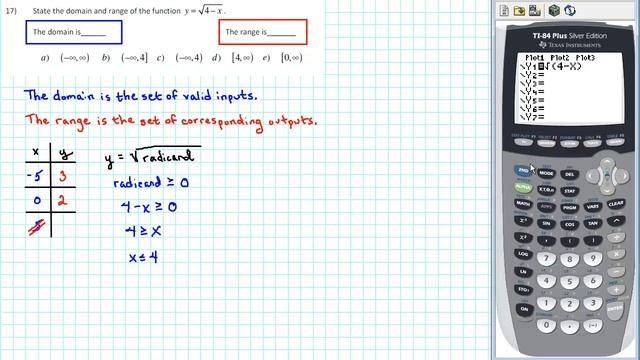 17) State the domain and range of the function y = √4 − x .
The domain is______
The range is______
a) (−∞,∞) b) (−∞,4] c) (−∞,4) d) [4,∞) e) [0,∞)
The domain is the set of valid inputs.
The range is the set of corresponding outputs.
x y
-5 3
0 2
y = √radicand
radicand ≥ 0
4-x ≥ 0
4 ≥ x
x ≤ 4
TI-84 Plus Silver Edition
TEXAS INSTRUMENTS
Plot1 Plot2 Plot3
\Y1=√(4-X)
\Y2=
\Y3=
\Y4=
\Y5=
\Y6=
\Y7=
2ND MODE DEL
ALPHA X,T,Θ,n STAT
MATH APPS PRGM VARS CLEAR
x² SIN COS TAN ^
x² , ( ) ÷
LOG 7 8 9 ×
LN 4 5 6 −
STO› 1 2 3 +
ON 0 . (-) ENTER